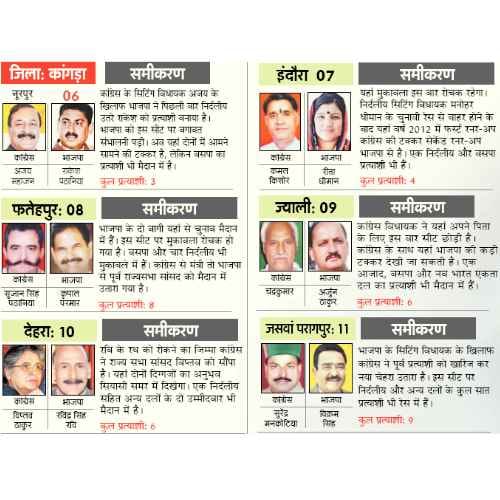 जिला: कांगड़ा
समीकरण
नूरपुर 06
कांग्रेस
भाजपा
अजय महाजन
राकेश पठानिया
कांग्रेस के सिटिंग विधायक अजय के
खिलाफ भाजपा ने पिछली बार निर्दलीय
उतरे राकेश को प्रत्याशी बनाया है।
भाजपा को इस सीट पर बगावत
संभालनी पड़ी। अब यहां दोनों में आमने
सामने की टक्कर है, लेकिन बसपा का
प्रत्याशी भी मैदान में है।
कुल प्रत्याशी: 3
इंदौरा 07
समीकरण
कांग्रेस
भाजपा
कमल किशोर
रीता धीमान
यहां मुकाबला इस बार रोचक रहेगा।
निर्दलीय सिटिंग विधायक मनोहर
धीमान के चुनावी रेस से बाहर होने के
बाद यहां वर्ष 2012 में फर्स्ट रनर-अप
कांग्रेस की टक्कर सेकेंड रनर-अप
भाजपा से है। एक निर्दलीय और बसपा
प्रत्याशी भी है।
कुल प्रत्याशी: 4
फतेहपुर: 08
समीकरण
कांग्रेस
भाजपा
सुजान सिंह पठानिया
कृपाल परमार
भाजपा के दो बागी यहां से चुनाव मैदान
में हैं। इस सीट पर मुकाबला रोचक हो
गया है। बसपा और चार निर्दलीय भी
मुकाबले में हैं। कांग्रेस से मंत्री तो भाजपा
से पूर्व राज्यसभा सांसद को मैदान में
उतारा गया है।
कुल प्रत्याशी: 8
ज्वाली: 09
समीकरण
कांग्रेस
भाजपा
चंद्रकुमार
अर्जुन ठाकुर
कांग्रेस विधायक ने यहां अपने पिता
के लिए इस बार सीट छोड़ी है।
कांग्रेस के साथ यहां भाजपा की कड़ी
टक्कर देखी जा सकती है। एक
आजाद, बसपा और नव भारत एकता
दल का प्रत्याशी भी मैदान में है।
कुल प्रत्याशी: 6
देहरा: 10
समीकरण
कांग्रेस
भाजपा
विप्लव ठाकुर
रविंद्र सिंह रवि
रवि के रथ को रोकने का जिम्मा कांग्रेस
ने राज्य सभा सांसद विप्लव को सौंपा
है। यहां दोनों दिग्गजों का अनुभव
सियासी समर में दिखेगा। एक निर्दलीय
सहित अन्य दलों के दो उम्मीदवार भी
मैदान में है।
कुल प्रत्याशी: 6
जसवां परागपुर: 11
समीकरण
कांग्रेस
भाजपा
सुरेंद्र मनकोटिया
विक्रम सिंह
भाजपा के सिटिंग विधायक के खिलाफ
कांग्रेस ने पूर्व प्रत्याशी को खारिज कर
नया चेहरा उतारा है। इस सीट पर
निर्दलीय और अन्य दलों के कुल सात
प्रत्याशी भी रेस में हैं।
कुल प्रत्याशी: 9